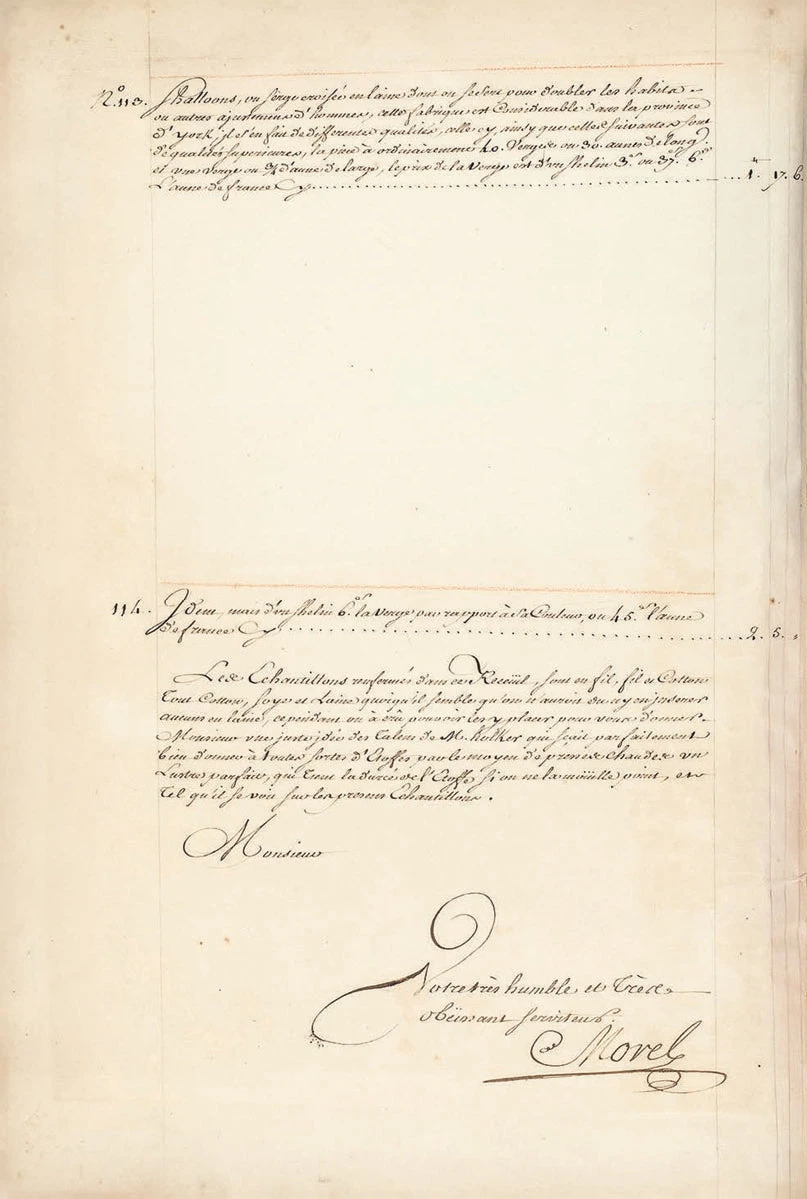 N.º 113. Shalloons, ou Serge croisée en laine dont on se sert pour doubler les habits
ou autres ajustemens d'hommes, cette fabrique est Considerable dans la province
d'york, il s'en fait de differentes qualités, celle cy, ainsy que celles suivantes sont
de qualités superieures, la piece à ordinairement 40. Verges ou 30. aunes de long,
et une Verge ou ¾ d'aune de large, le prix de la Verge est d'un Shelin 3.ᵈ ou 37.ˢ 6.ᵈ
L'aune de france Cy .......... 1.ᵗᵗ 17. 6.
114. Idem, mais d'un Shelin 6.ᵈ la Verge par rapport à Sa Couleur, ou 45.ˢ L'aune
de france Cy .......... 2. 5. "
Les Echantillons renfermés dans ce Receüil, sont en fil, fil et Cotton
Tout Cotton, soye et Laine quoiqu'il semble qu'on n'auroit du n'y en inserer
aucuns en laine, cependant on à crû pouvoir les y placer pour vous donner
Monsieur une juste idée des Talens de M. hulker qui sçait parfaitement
bien donner à toutes sortes d'Etoffes par le moyen de presses chaudes un
Lustre parfait, qui tient la durée de l'Etoffe si on ne la moüille point, et
tel qu'il se voit sur les presens Echantillons.
Monsieur
Votre très humble et Très
obéissant serviteur.
Morel